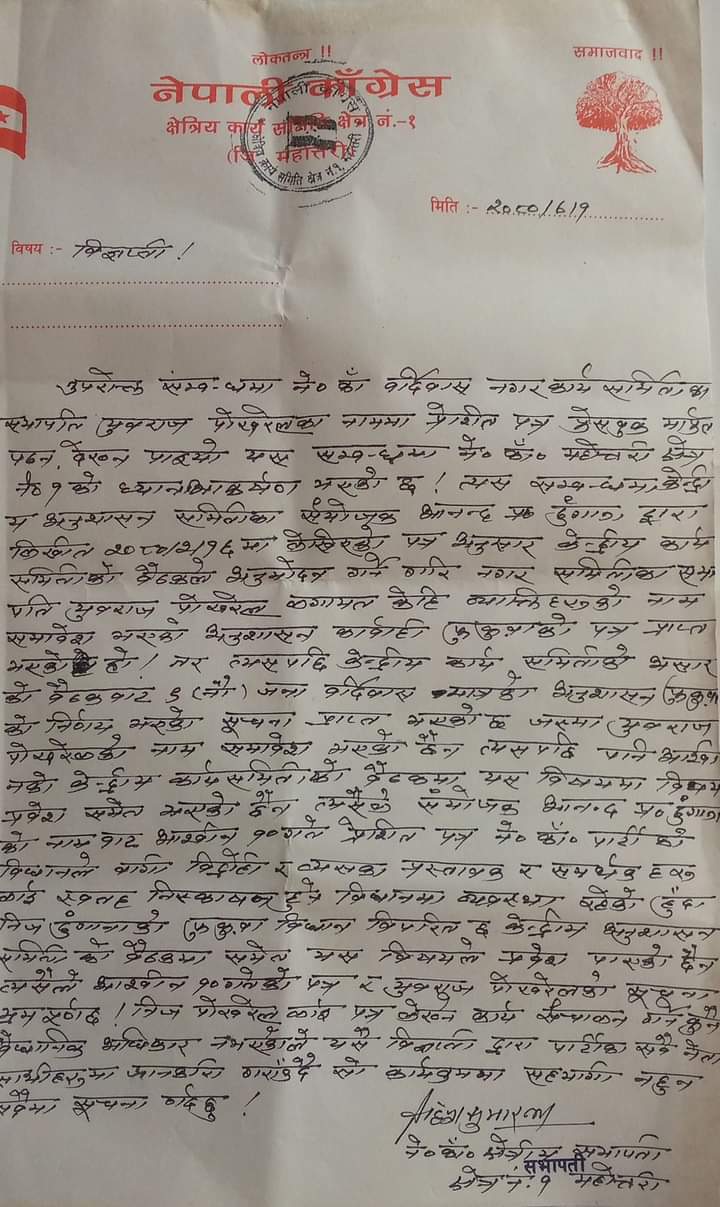 लोकतन्त्र !!
समाजवाद !!
नेपाली काँग्रेस
क्षेत्रिय कार्य समिति क्षेत्र नं.-१
(जि. महोत्तरी)
मिति :- २०८०/६/१
विषय :- विज्ञप्ती !
उपरोक्त सम्बन्धमा ने० काँ वर्दिवास नगर कार्य समितिका
सभापति युवराज पोखरेलका नाममा प्रेषित पत्र फेसवुक मार्फत
पढन, देख्न पाइयो यस सम्बन्धमा ने० काँ० महोत्तरी क्षेत्र
नं० १ को ध्यानआकर्षण भएको छ ! त्यस सम्बन्धमा केन्द्री
य अनुशासन समितीका संयोजक आनन्द प्र० ढुंगाना द्वारा
लिखीत मा लेखिएको पत्र अनुसार केन्द्रीय कार्य
समितिको बैठकले अनुमोदन गर्ने गरि नगर समितिका सभा
पति युवराज पोखरेल लगायत केहि व्याक्तिहरुको नाम
समावेश भएको अनुशासन कार्वाही फुकुवाको पत्र प्राप्त
भएको हो ! तर त्यसपछि केन्द्रीय कार्य समितीको असार
को बैठकवाट ९ (नौ) जना वर्दिवास मात्रको अनुशासन फुकुवा
को निर्णय भएको सूचना प्राप्त भएको छ जसमा युवराज
पोखरेलको नाम समावेश भएको छैन त्यसपछि पनि
को केन्द्रीय कार्य समितिको बैठकमा यस विषयमा विषय
प्रवेश समेत भएको छैन त्यसैले संयोजक आनन्द प्र० ढुंगाना
को नाम वाट आश्वीन १० गते प्रेशित पत्र ने० काँ० पार्टी को
विधानले वागी विद्रोही र त्यसका प्रस्तावक र समर्थक हरु
लाई स्वतह निस्काषन हुने विधानमा व्यवस्था रहेको हुँदा
निज ढुंगानाको फुकुवा विधान विपरित छ केन्द्रीय अनुशासन
समिती को बैठकमा समेत यस विषयले प्रवेश पाएको छैन
त्यसैले आश्वीन १० गतेको पत्र र युवराज पोखरेलको सूचना
भ्रमपूर्ण छ ! निज पोखरेल लाई पत्र लेख्न कार्य संचालन गर्न कुनै
वैधानिक अधिकार नभएकोले यसै विज्ञप्ती द्वारा पार्टीका सवै नेता
साथीहरुमा जानकारी गराउँदै सो कार्यक्रममा सहभागी नहुन
सवैमा सूचना गर्दछु !
ने० काँ० क्षेत्रीय सभापती
सभापती
क्षेत्र नं. १ महोत्तरी